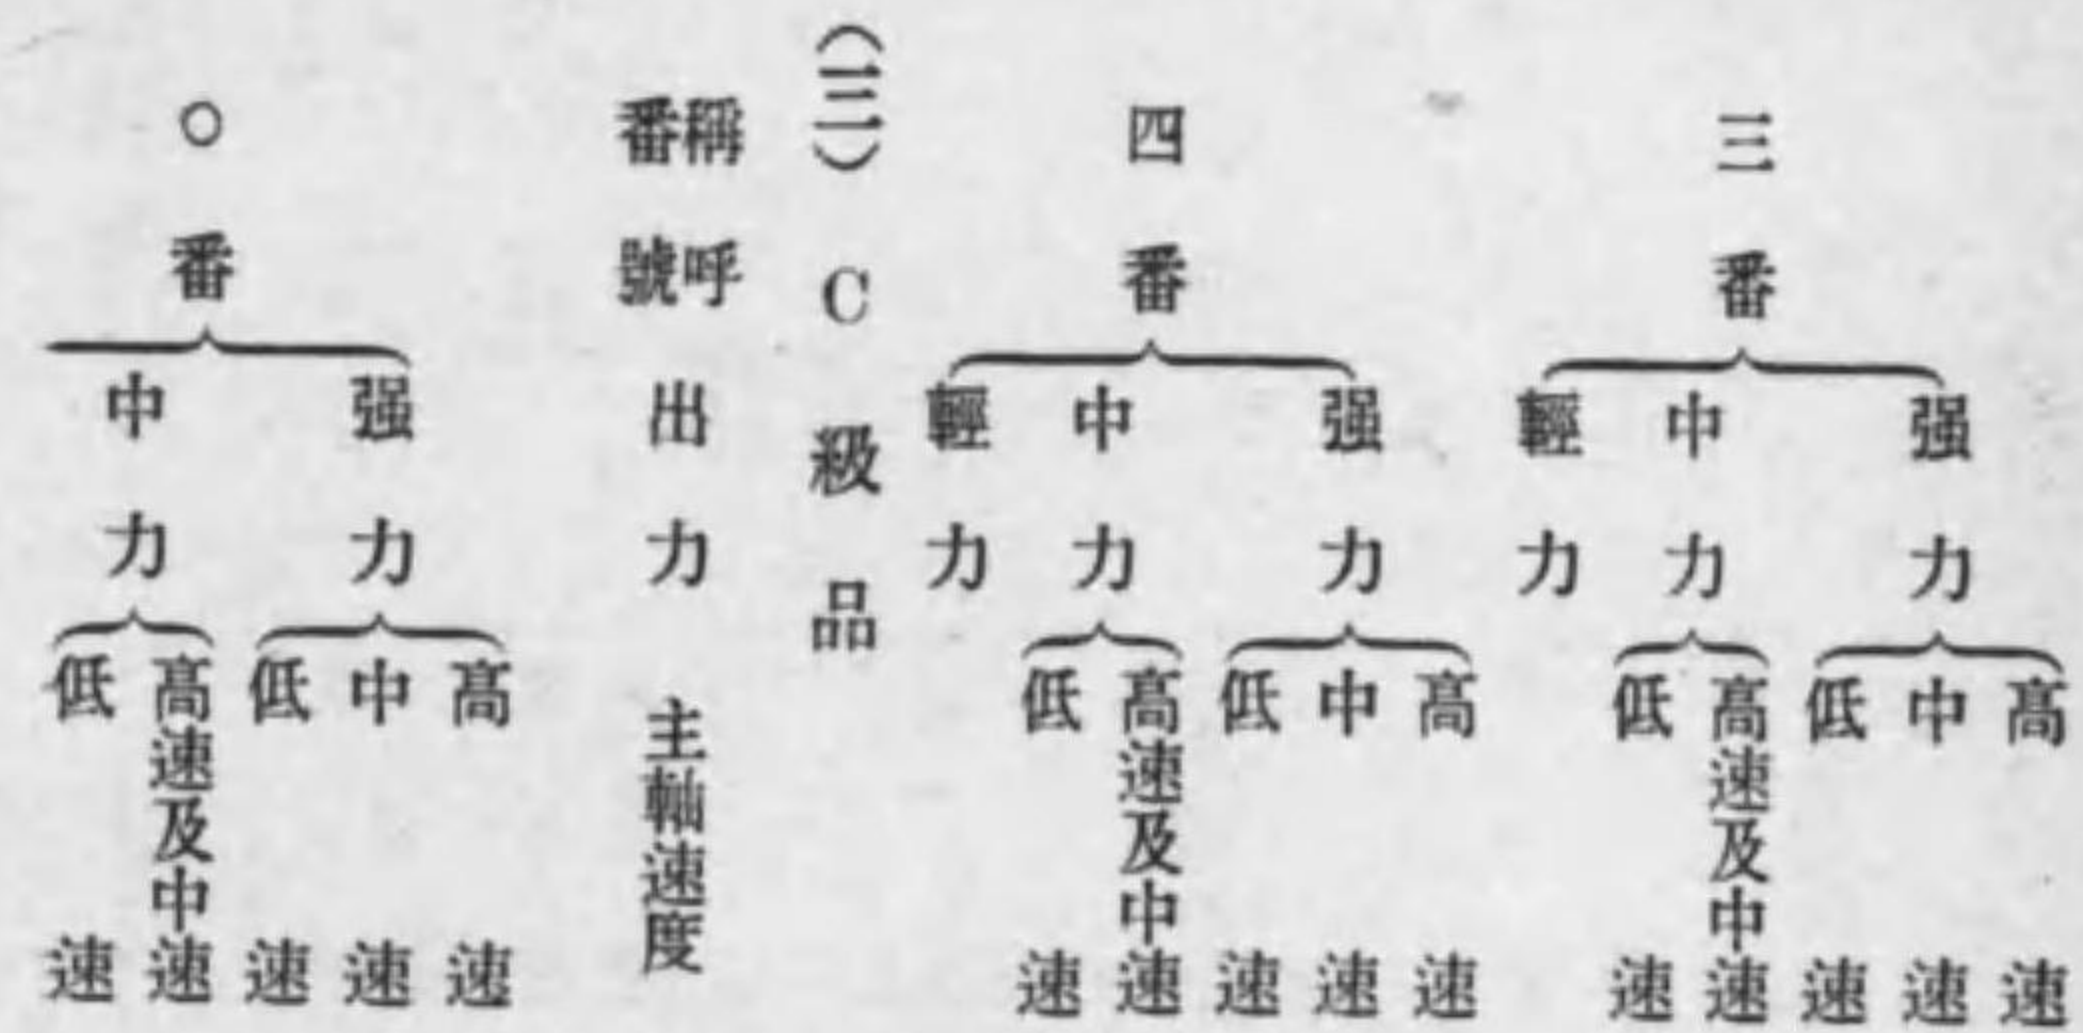 三番
强力
高速
中速
低速
中力
高速及中速
低速
輕力
四番
强力
高速
中速
低速
中力
高速及中速
低速
輕力
(三)C級品
稱呼
番號
出力
主軸速度
〇番
强力
高速
中速
低速
中力
高速及中速
低速